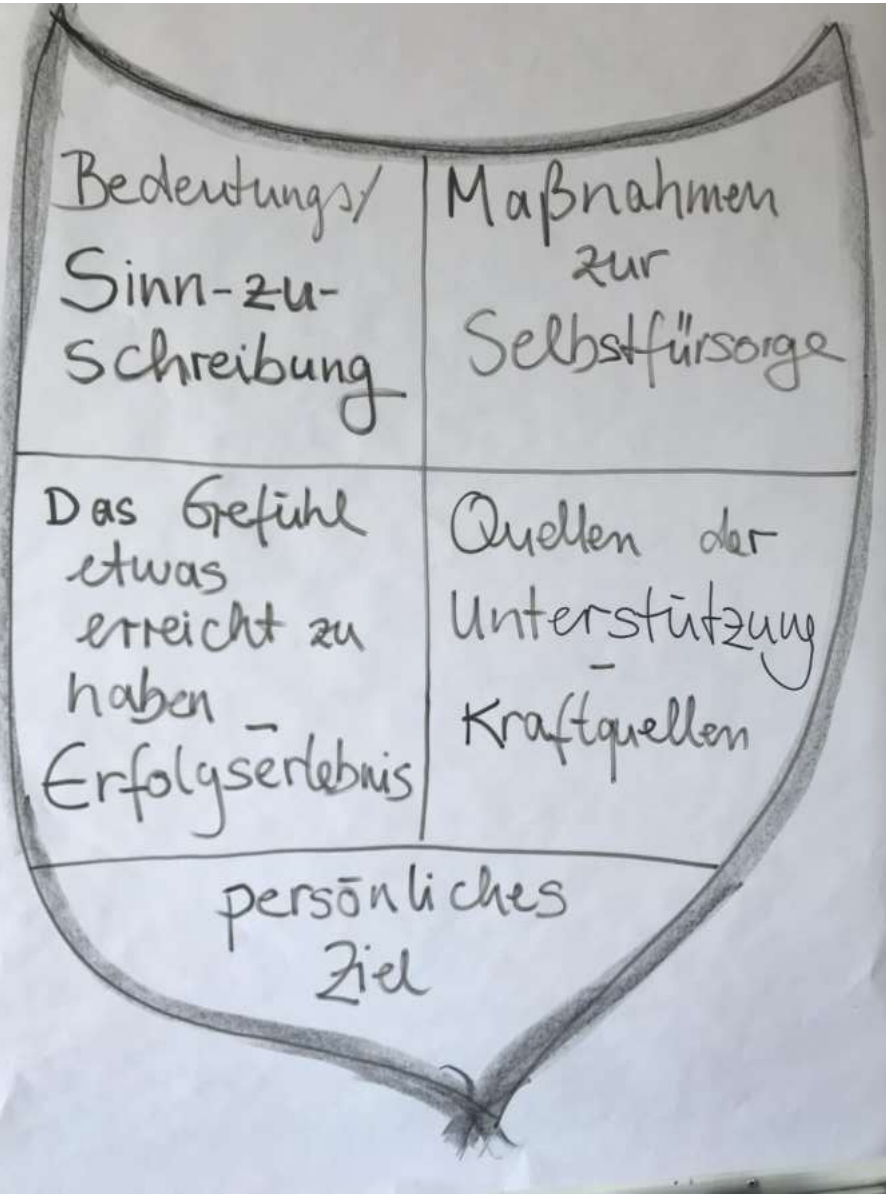 Bedeutungs/
Sinn-zu-
schreibung
Maßnahmen
zur
Selbstfürsorge
Das Gefühl
etwas
erreicht zu
haben -
Erfolgserlebnis
Quellen der
Unterstützung
-
Kraftquellen
persönliches
Ziel